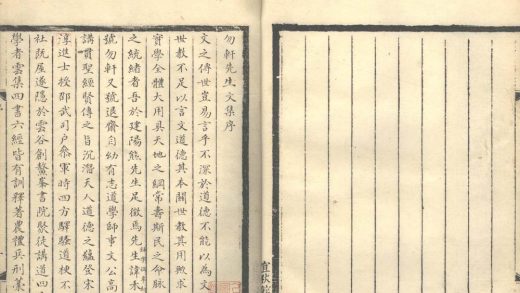 勿軒先生文集序
文之傳世豈易言乎不深於道德不能以為文
世教不足以言文道德其本關世教其用歟求
實學全體大用具天地之綱常壽斯民之命脉
之統緒者吾於建陽熊先生足徵焉先生諱禾
號勿軒又號退齋自幼有志道學師事文公高
講貫聖經賢傳之旨沉潛天人道德之蘊登宋
淳進士授邵武司戶叅軍時四方驛騷道梗不
社既屋遂隱於雲谷創鰲峯書院聚徒講道四
學者雲集四書六經皆有訓釋著農禮兵刑藁
宜秋